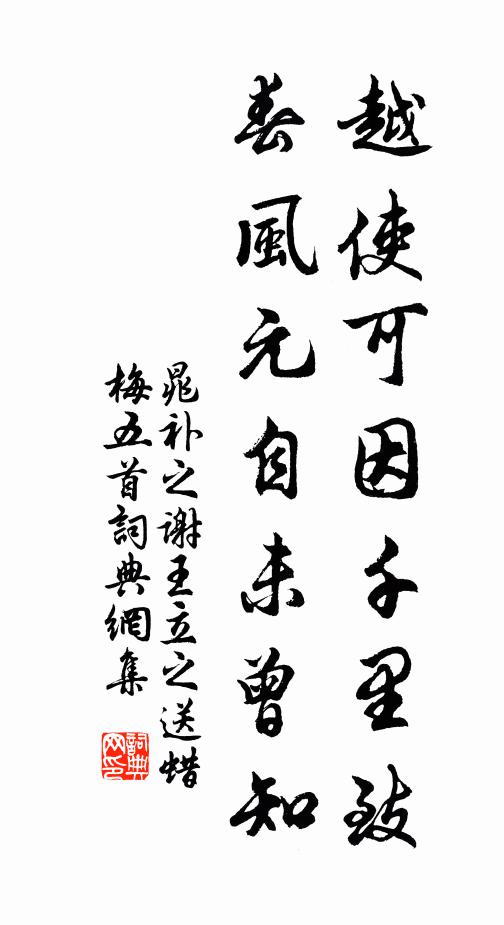 越使可因千里致
春風元自未曾知
晁补之谢王立之送蜡
梅五首詞典網集
詞典网印